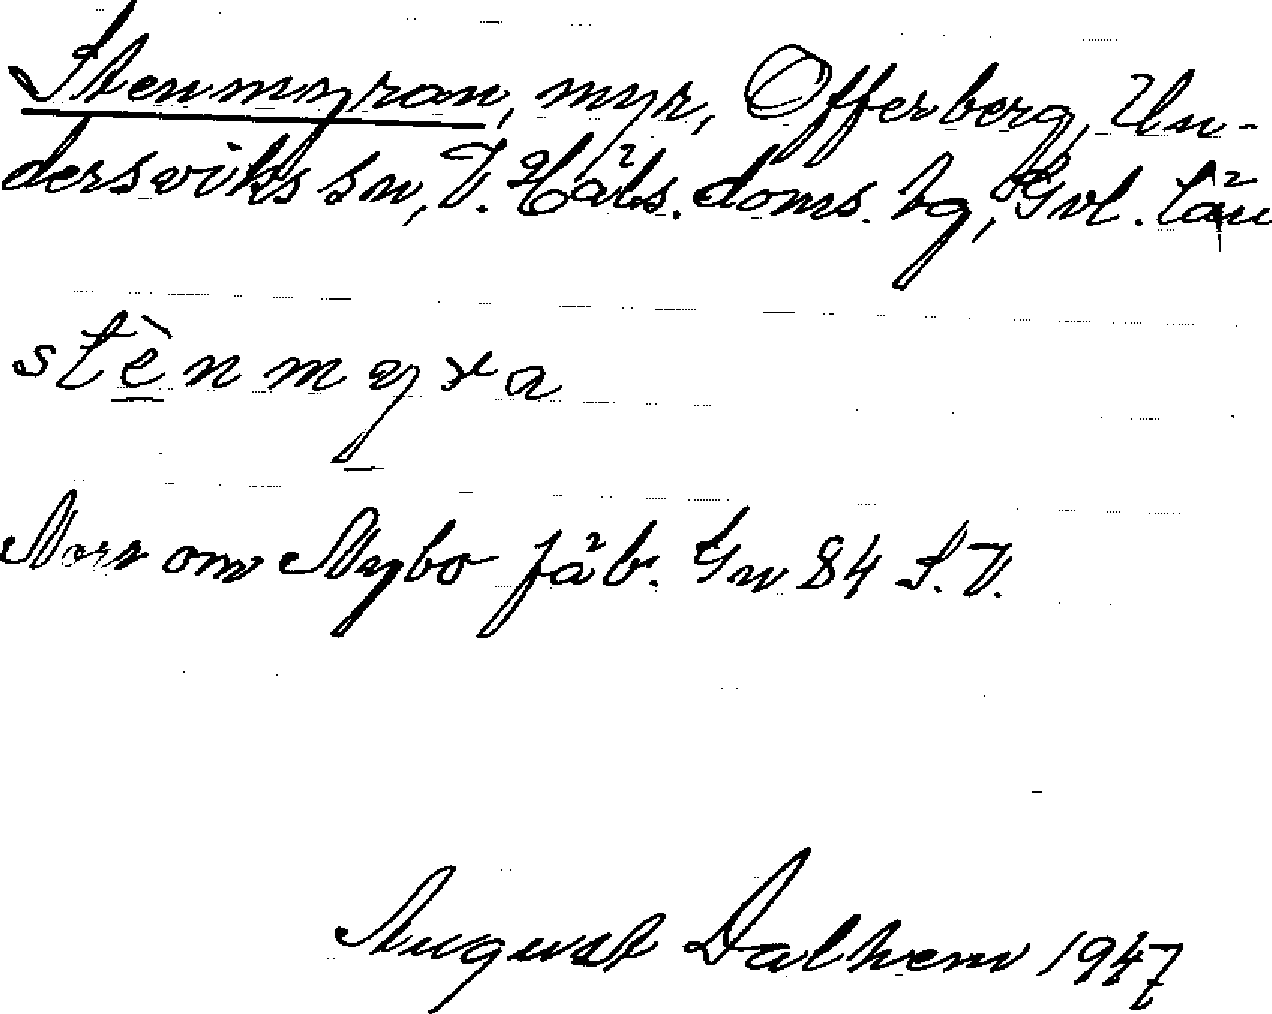 Stenmyran, myr, Offerberg, Un-
dersviks sn, V. Häls. doms. hg, Gvl. län
stènmyra
Norr om Nybo fäb. Gn 84 S.V.
August Dalhem 1947